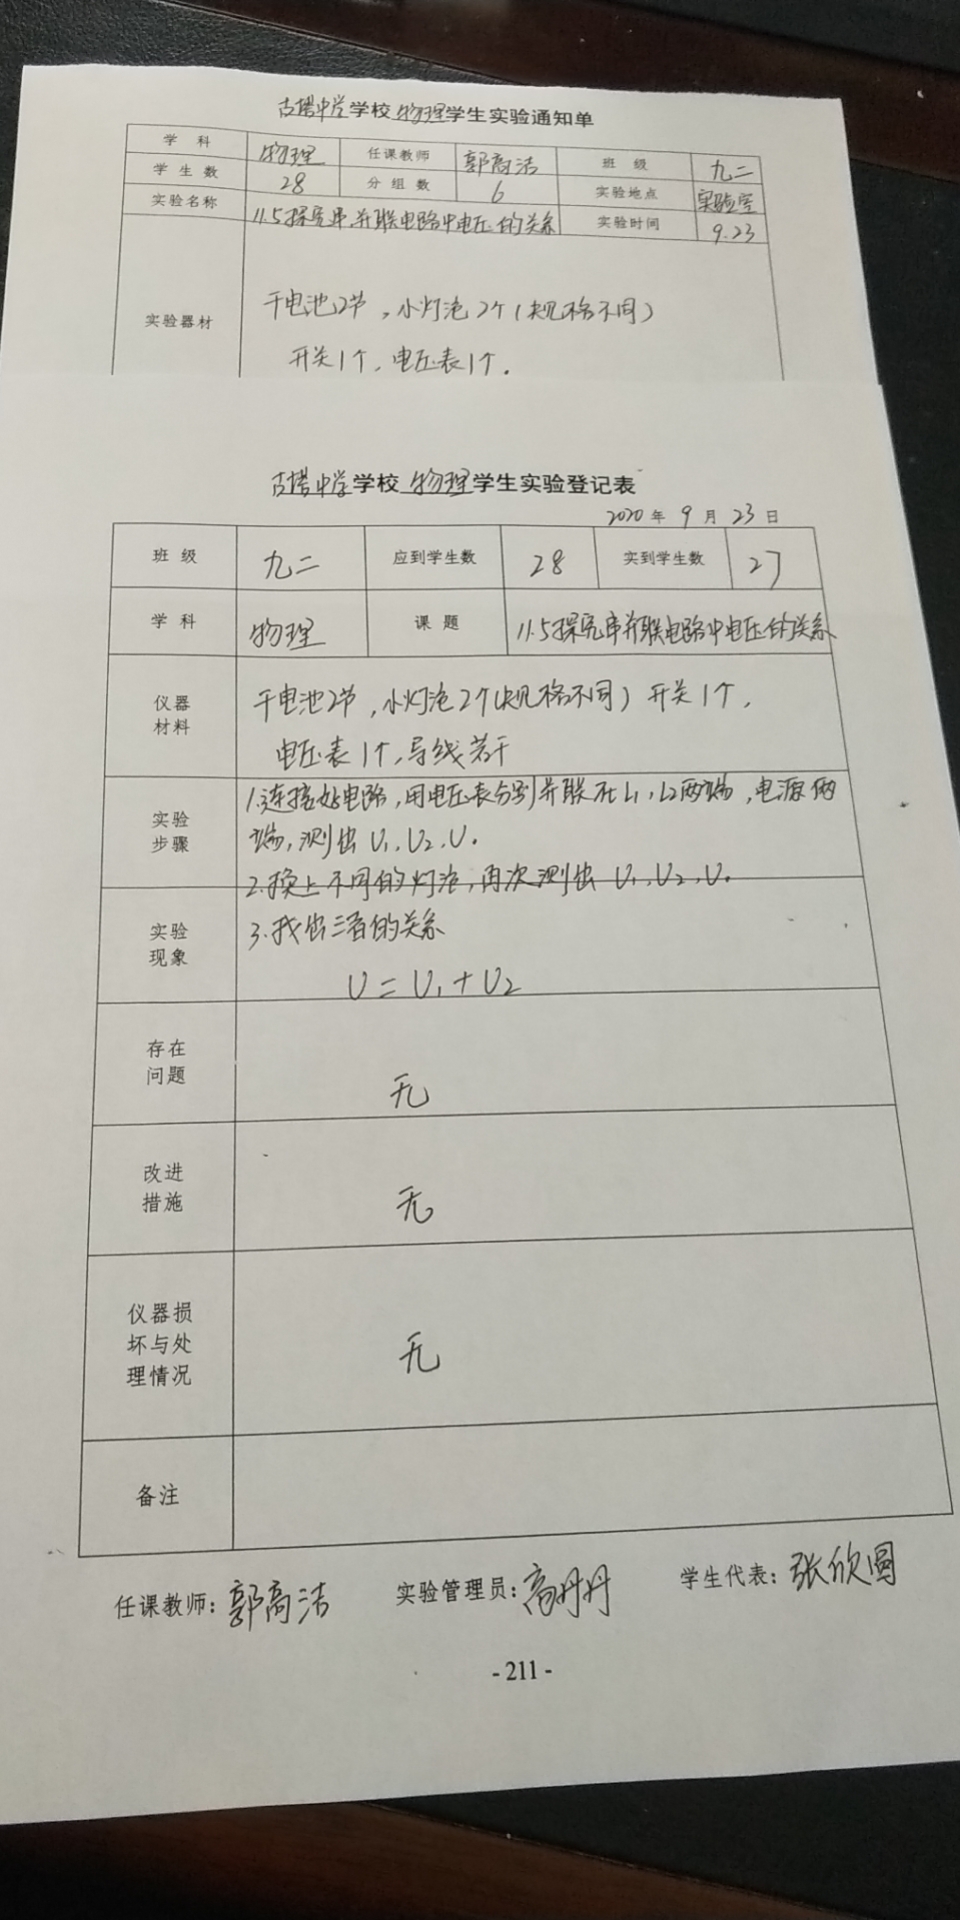 古塔中学学校物理学生实验通知单
学 科 物理 任课教师 郭高洁 班 级 九二
学 生 数 28 分 组 数 6 实验地点 实验室
实验名称 11.5探究串,并联电路中电压的关系 实验时间 9.23
实验器材
干电池2节,小灯泡2个(规格不同)
开关1个,电压表1个.
古塔中学学校物理学生实验登记表
2020年9月23日
班 级 九二 应到学生数 28 实到学生数 27
学 科 物理 课 题 11.5探究串并联电路中电压的关系
仪器
材料
干电池2节,小灯泡2个(规格不同)开关1个,
电压表1个,导线若干
实验
步骤
1.连接好电路,用电压表分别并联在L1,L2两端,电源两
端,测出U1、U2、U.
2.换上不同的灯泡,再次测出U1、U2、U.
实验
现象
3.找出三者的关系
U=U1+U2
存在
问题
无
改进
措施
无
仪器损
坏与处
理情况
无
备注
任课教师:郭高洁 实验管理员:高丹丹 学生代表:张欣圆
- 211 -